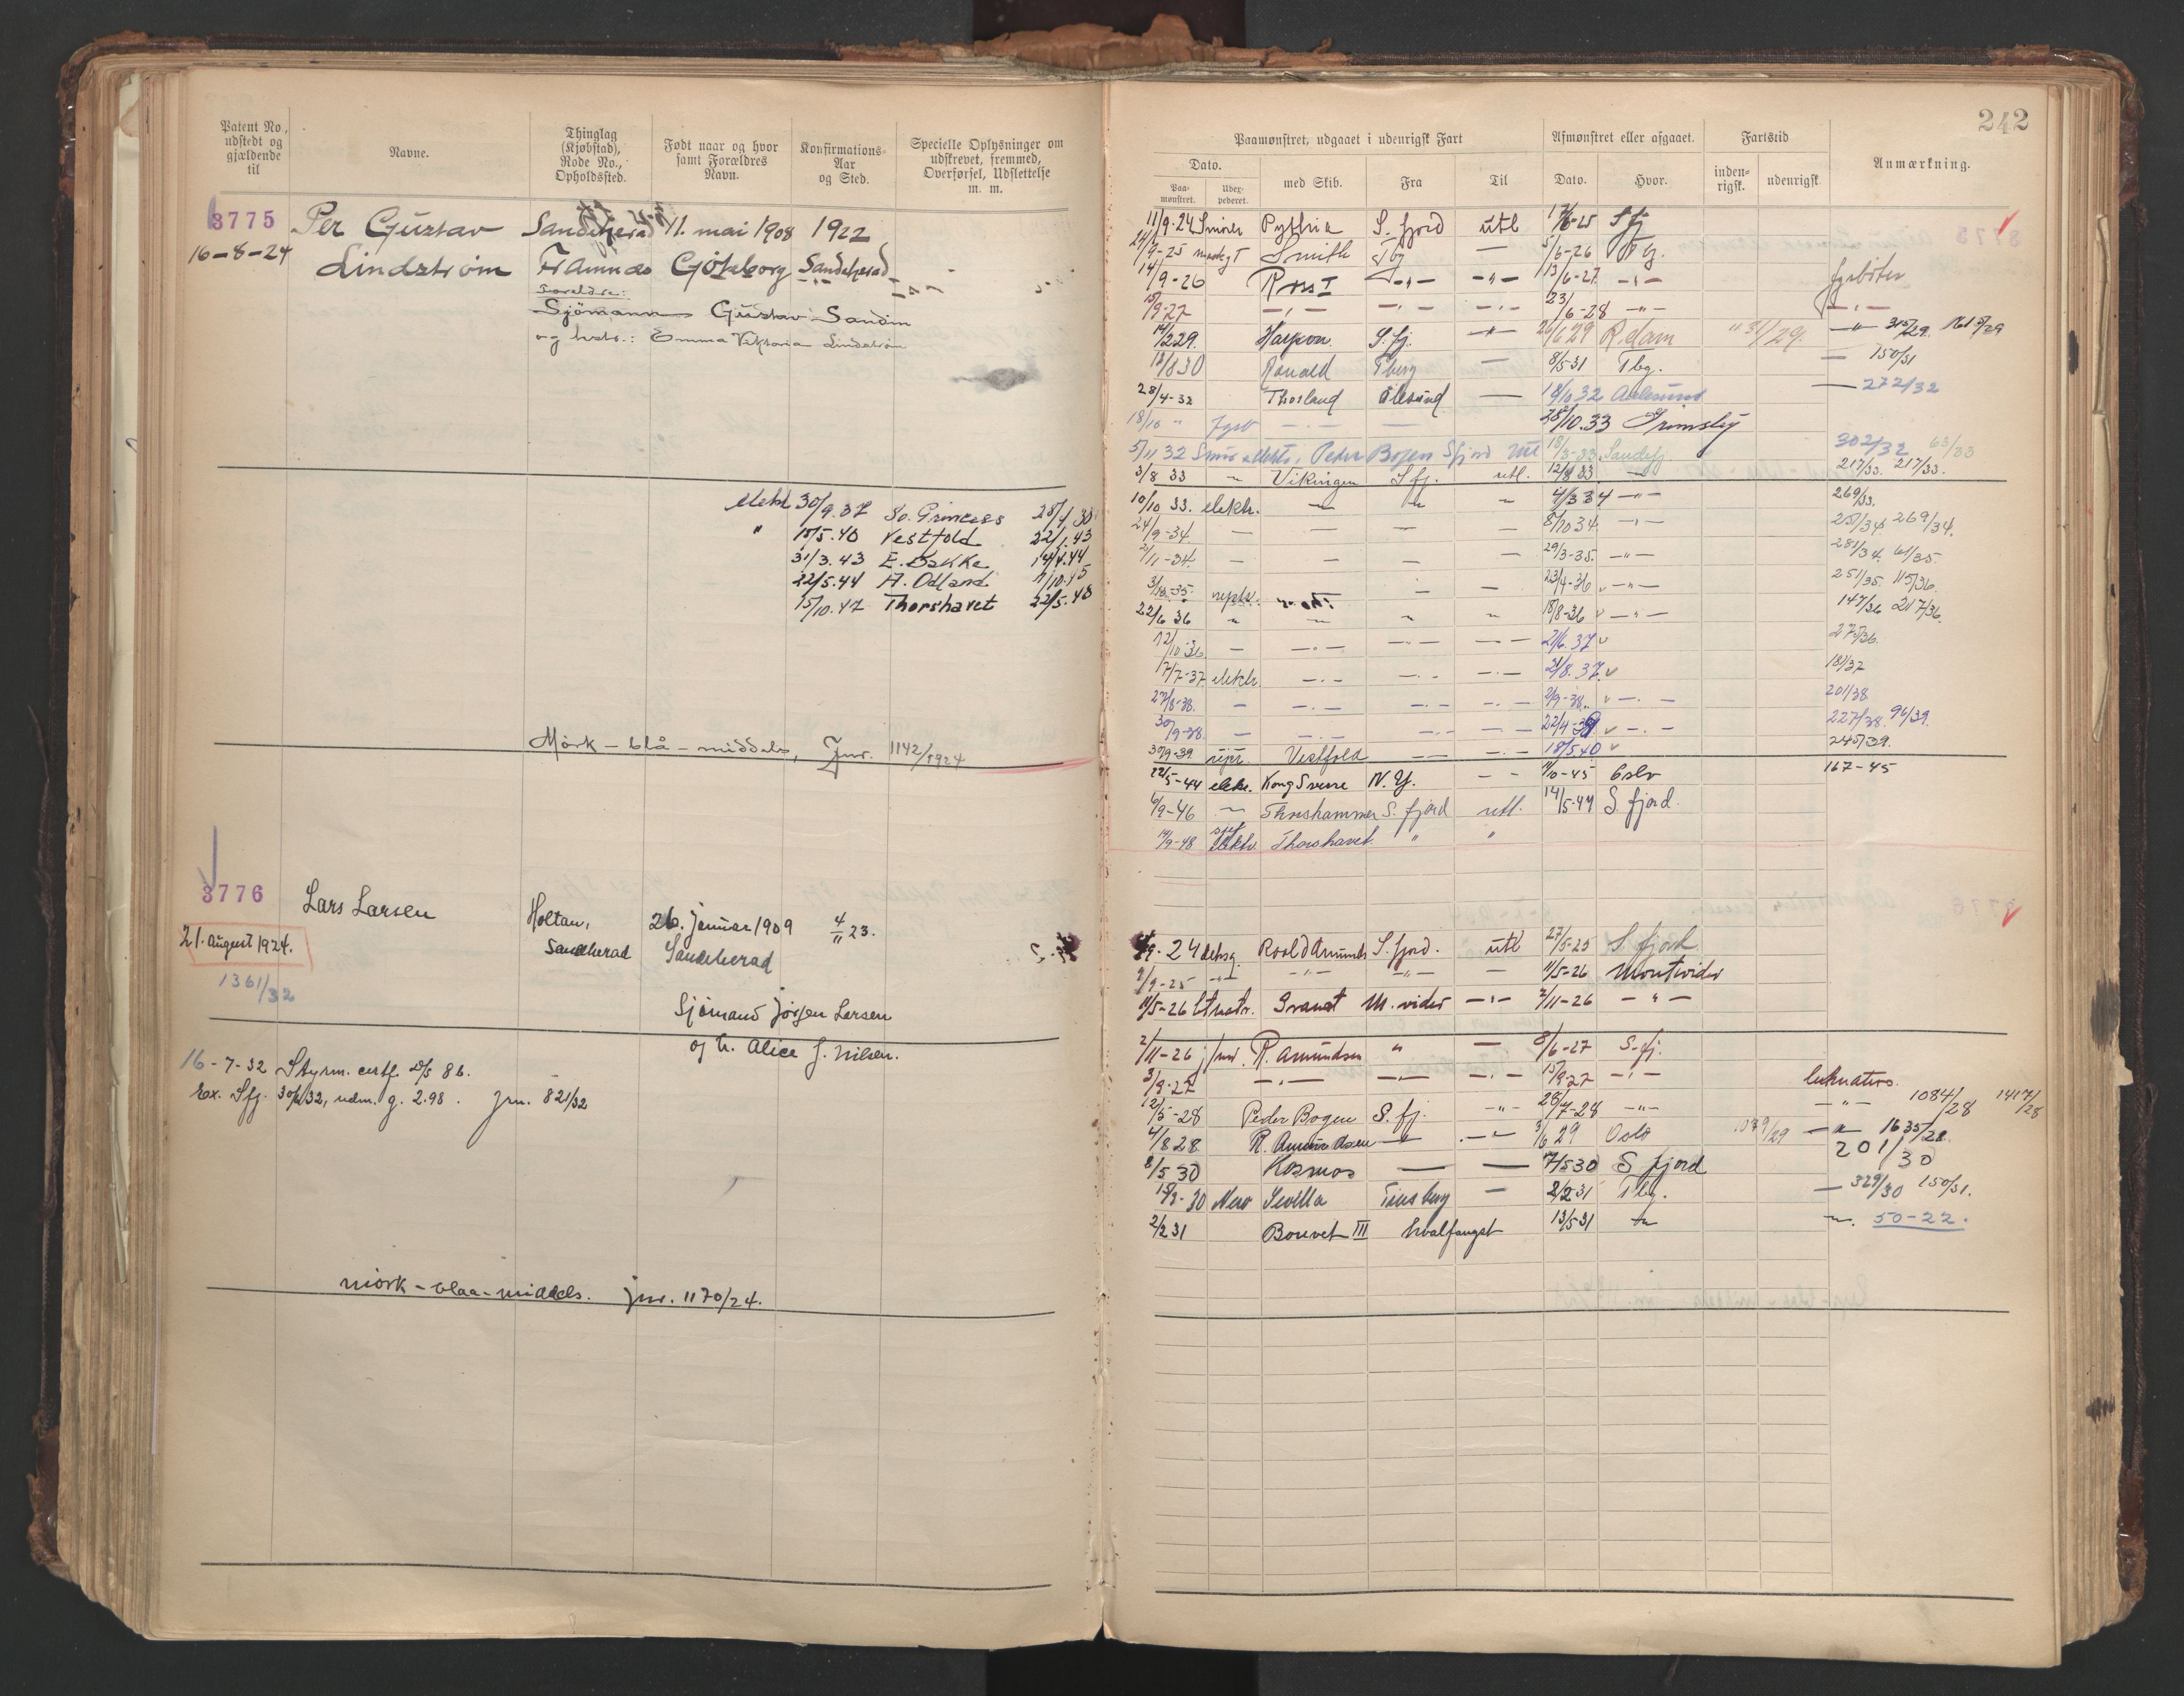 242
Patent No., udstedt og gjældende til
Navne.
Thinglag (Kjøbstad), Rode No., Opholdssted.
Født naar og hvor samt Forældres Navn.
Konfirmations-Aar og Sted.
Specielle Oplysninger om udskrevet, fremmed, Overførsel, Udslettelse m. m.
3775 Per Gustav Sandeherad 11. mai 1908 1922
16-8-24 Lindstrøm Framnæs Göteborg Sandeherad
Foreldre:
Sjömann Gustav Sandin
og hustr.: Emma Viktoria Lindström
elektr 30/9.37 So. Princess 28/4 38
" 18/5.40 Vestfold 22/1.43
31/3.43 E. Bakke 14/4.44
22/5.44 A. Odland 11/10.45
15/10.47 Thorshavet 22/5.48
Mörk - blå - middels, Jnr. 1142/1924
3776 Lars Larsen Holtan, 26. januar 1909 4/11 23.
21. August 1924. Sandeherad Sandeherad
1361/32
Sjömand Jörgen Larsen
og h. Alice J. Nilsen.
16-7-32 Styrm. certf. 86.
Ex. Sfj. 30/6/32, udm. g. 2.98. Jnr. 821/32
mørk - blaa - middels. jnr. 1170/24.
Paamønstret, udgaaet i udenrigsk Fart
Afmønstret eller afgaaet.
Fartstid
Anmærkning.
Dato.
Paa-mønstret.
Udex-pederet.
med Skib.
Fra
Til
Dato.
Hvor.
inden-rigsk.
udenrigsk
11/9-24 Smører Pythia S. fjord utl 17/6-25 S fj
-25 Smith Tbg — 5/6-26 Tbg.
14/9-26 Ross I —"— —"— 13/6-27 —"— fyrbøter
15/9-27 —"— —"— —"— 23/6-28 —"— —"—
14/2 29. Harpon S. fj. —"— 26/6 29 R.dam " 31/29. —"— 315/29.
13/8 30 Ronald Tberg — 8/5 31 Tbg. — 150/31
28/4-32 Thorland Ålesund — 18/10 32 Aalesund — 272/32
18/10 " Fyrb —"— — 28/10.33 Grimsby
5/11 32 Peder Bogen Sfjord Utl 18/3-33 Sandefj. 302/32 63/33
3/8 33 " Vikingen S fj. utl. 12/8 33 — 217/33. 217/33.
10/10 33. elektr. — " " 4/3 34 —"— 269/33.
24/9-34. — — — — 8/10 34. —"— 251/34. 269/34.
2/11-34. — — — 29/3-35. —"— 281/34. 61/35.
3/10-35. — — 23/4-36 v —"— 251/35. 115/36.
22/6 36 " " " " 18/8-36 v —"— 147/36 217/36.
12/10 36. — —"— —"— — — 2/6.37 v 275/36.
17/7-37. elektr. —"— —"— —"— 21/8.37. v 181/37
27/8-38. — —"— —"— —"— 2/9-38. " —"— 201/38
30/9-38. — —"— —"— — — 22/4-39 v —"— 227/38. 96/39.
30/9-39. repr. Vestfold — — —"— 18/5.40 v 245/39.
22/5-44 elektr. Kong Sverre N. Y. — — 11/10-45 Oslo 167-45
6/9-46 " Thorshammer S. fjord utl. 14/5-47 S. fjord.
14/9-48 sjef elektr. Thorshavet " "
9-24 deksg. Roald Amunds S. fjord. utl 27/5-25 S. fjord
9/9-25 —"— —"— —"— — 11/5-26 Montvideo
11/5-26 Granat M. video —"— 2/11-26 —"—
2/11-26 j/md. R. Amundsen " — 8/6-27 S. fj.
3/9-27 —"— —"— —"— 15/9-27 —"—
12/5-28 Peder Bogen S. fj. —"— 28/7-28 —"— —"— 1084/28 1417/28
4/8 28 R. Amundsen — —"— 3/6 29 Oslo 1079/29 —"— 1635/28.
8/5 30 Kosmos — — 17/5 30 S fjord 201/30
18/9-30 New Sevilla Tönsberg — 2/2 31 Tbg. — 329/30 150/31.
2/2 31 Bouvet III hvalfangst 13/5 31 — —"— 50-22.